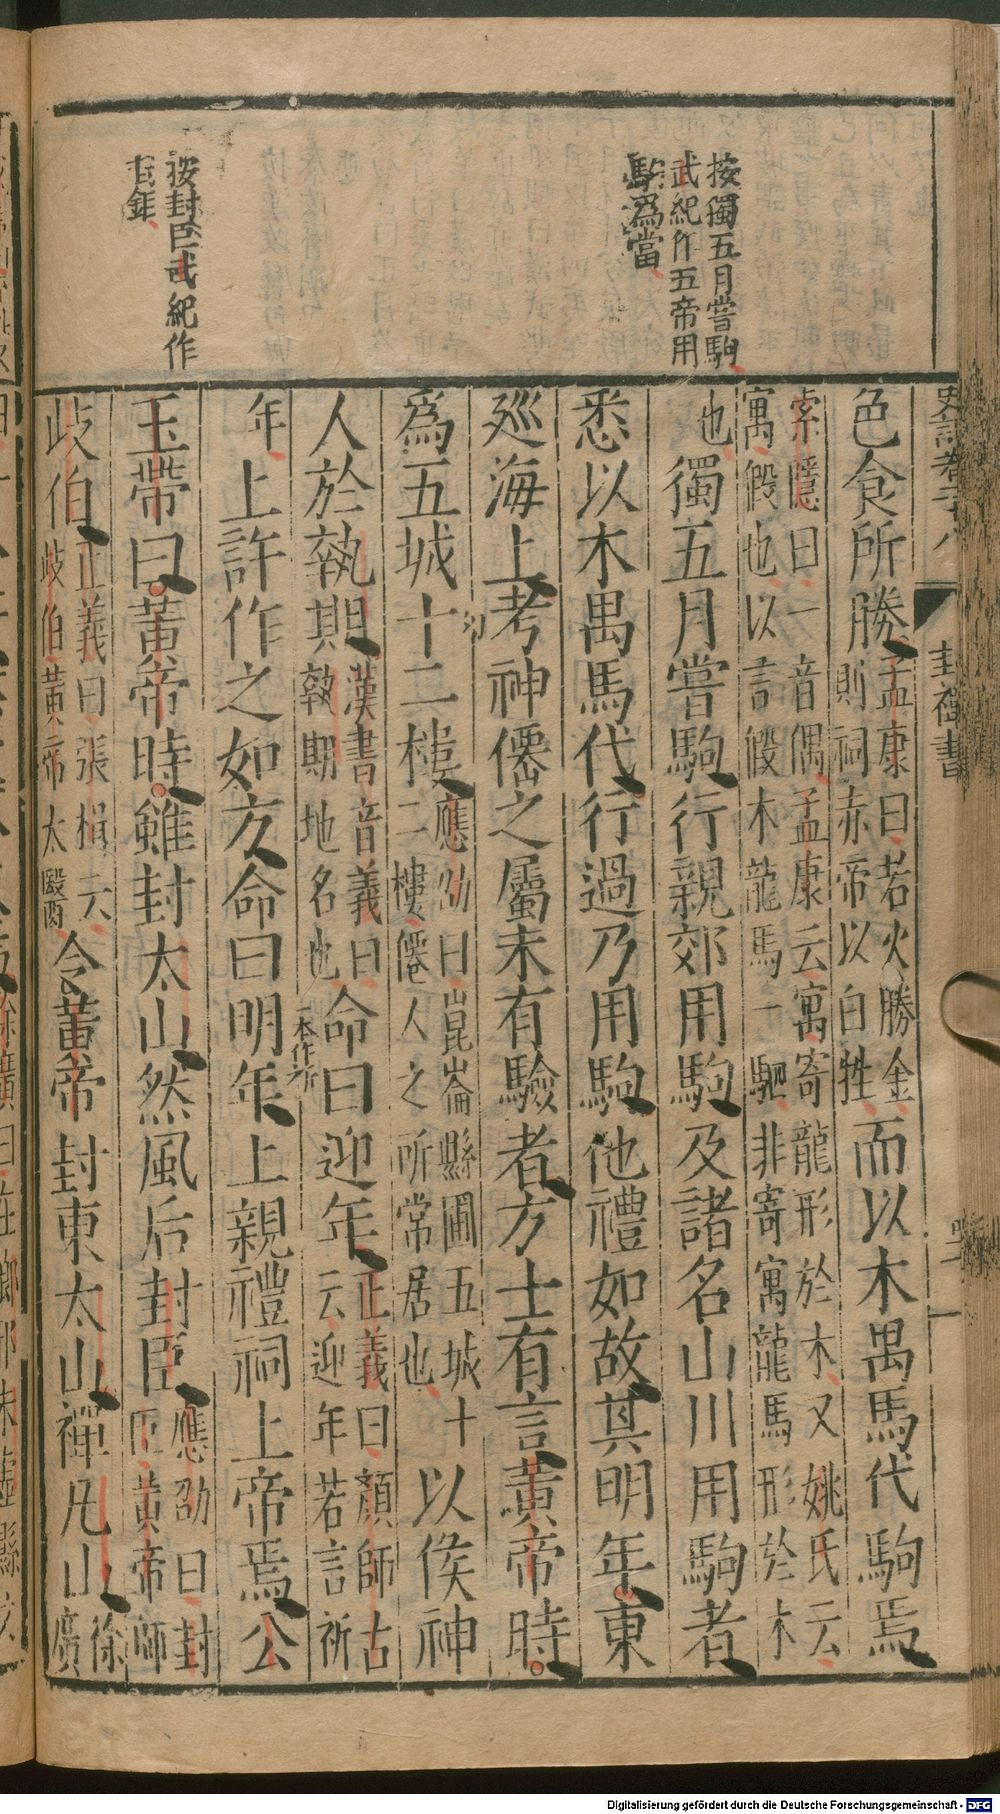 史記卷二十八
封禪書
按獨五月嘗駒
武紀作五帝用
駒爲當
按封臣武紀作
封鉅
色食所勝孟康曰若火勝金則祠赤帝以白牲而以木禺馬代駒焉
索隱曰一音偶孟康云寓寄龍形於木又姚氏云寓假也以言假木龍馬一駟非寄寓龍馬形於木
也獨五月嘗駒行親郊用駒及諸名山川用駒者
悉以木禺馬代行過乃用駒他禮如故其明年東
廵海上考神僊之屬未有驗者方士有言黃帝時
爲五城十二樓應劭曰崑崙縣圃五城十二樓僊人之所常居也以候神
人於執期漢書音義曰執期地名也命曰迎年正義曰顏師古云迎年若言祈
年上許作之如方命曰明年上親禮祠上帝焉公
一本作祈
王帶曰黃帝時雖封太山然風后封臣應劭曰封臣黃帝師
歧伯正義曰張揖云歧伯黃帝太醫令黃帝封東太山禪凡山徐廣
Digitalisierung gefördert durch die Deutsche Forschungsgemeinschaft - DFG